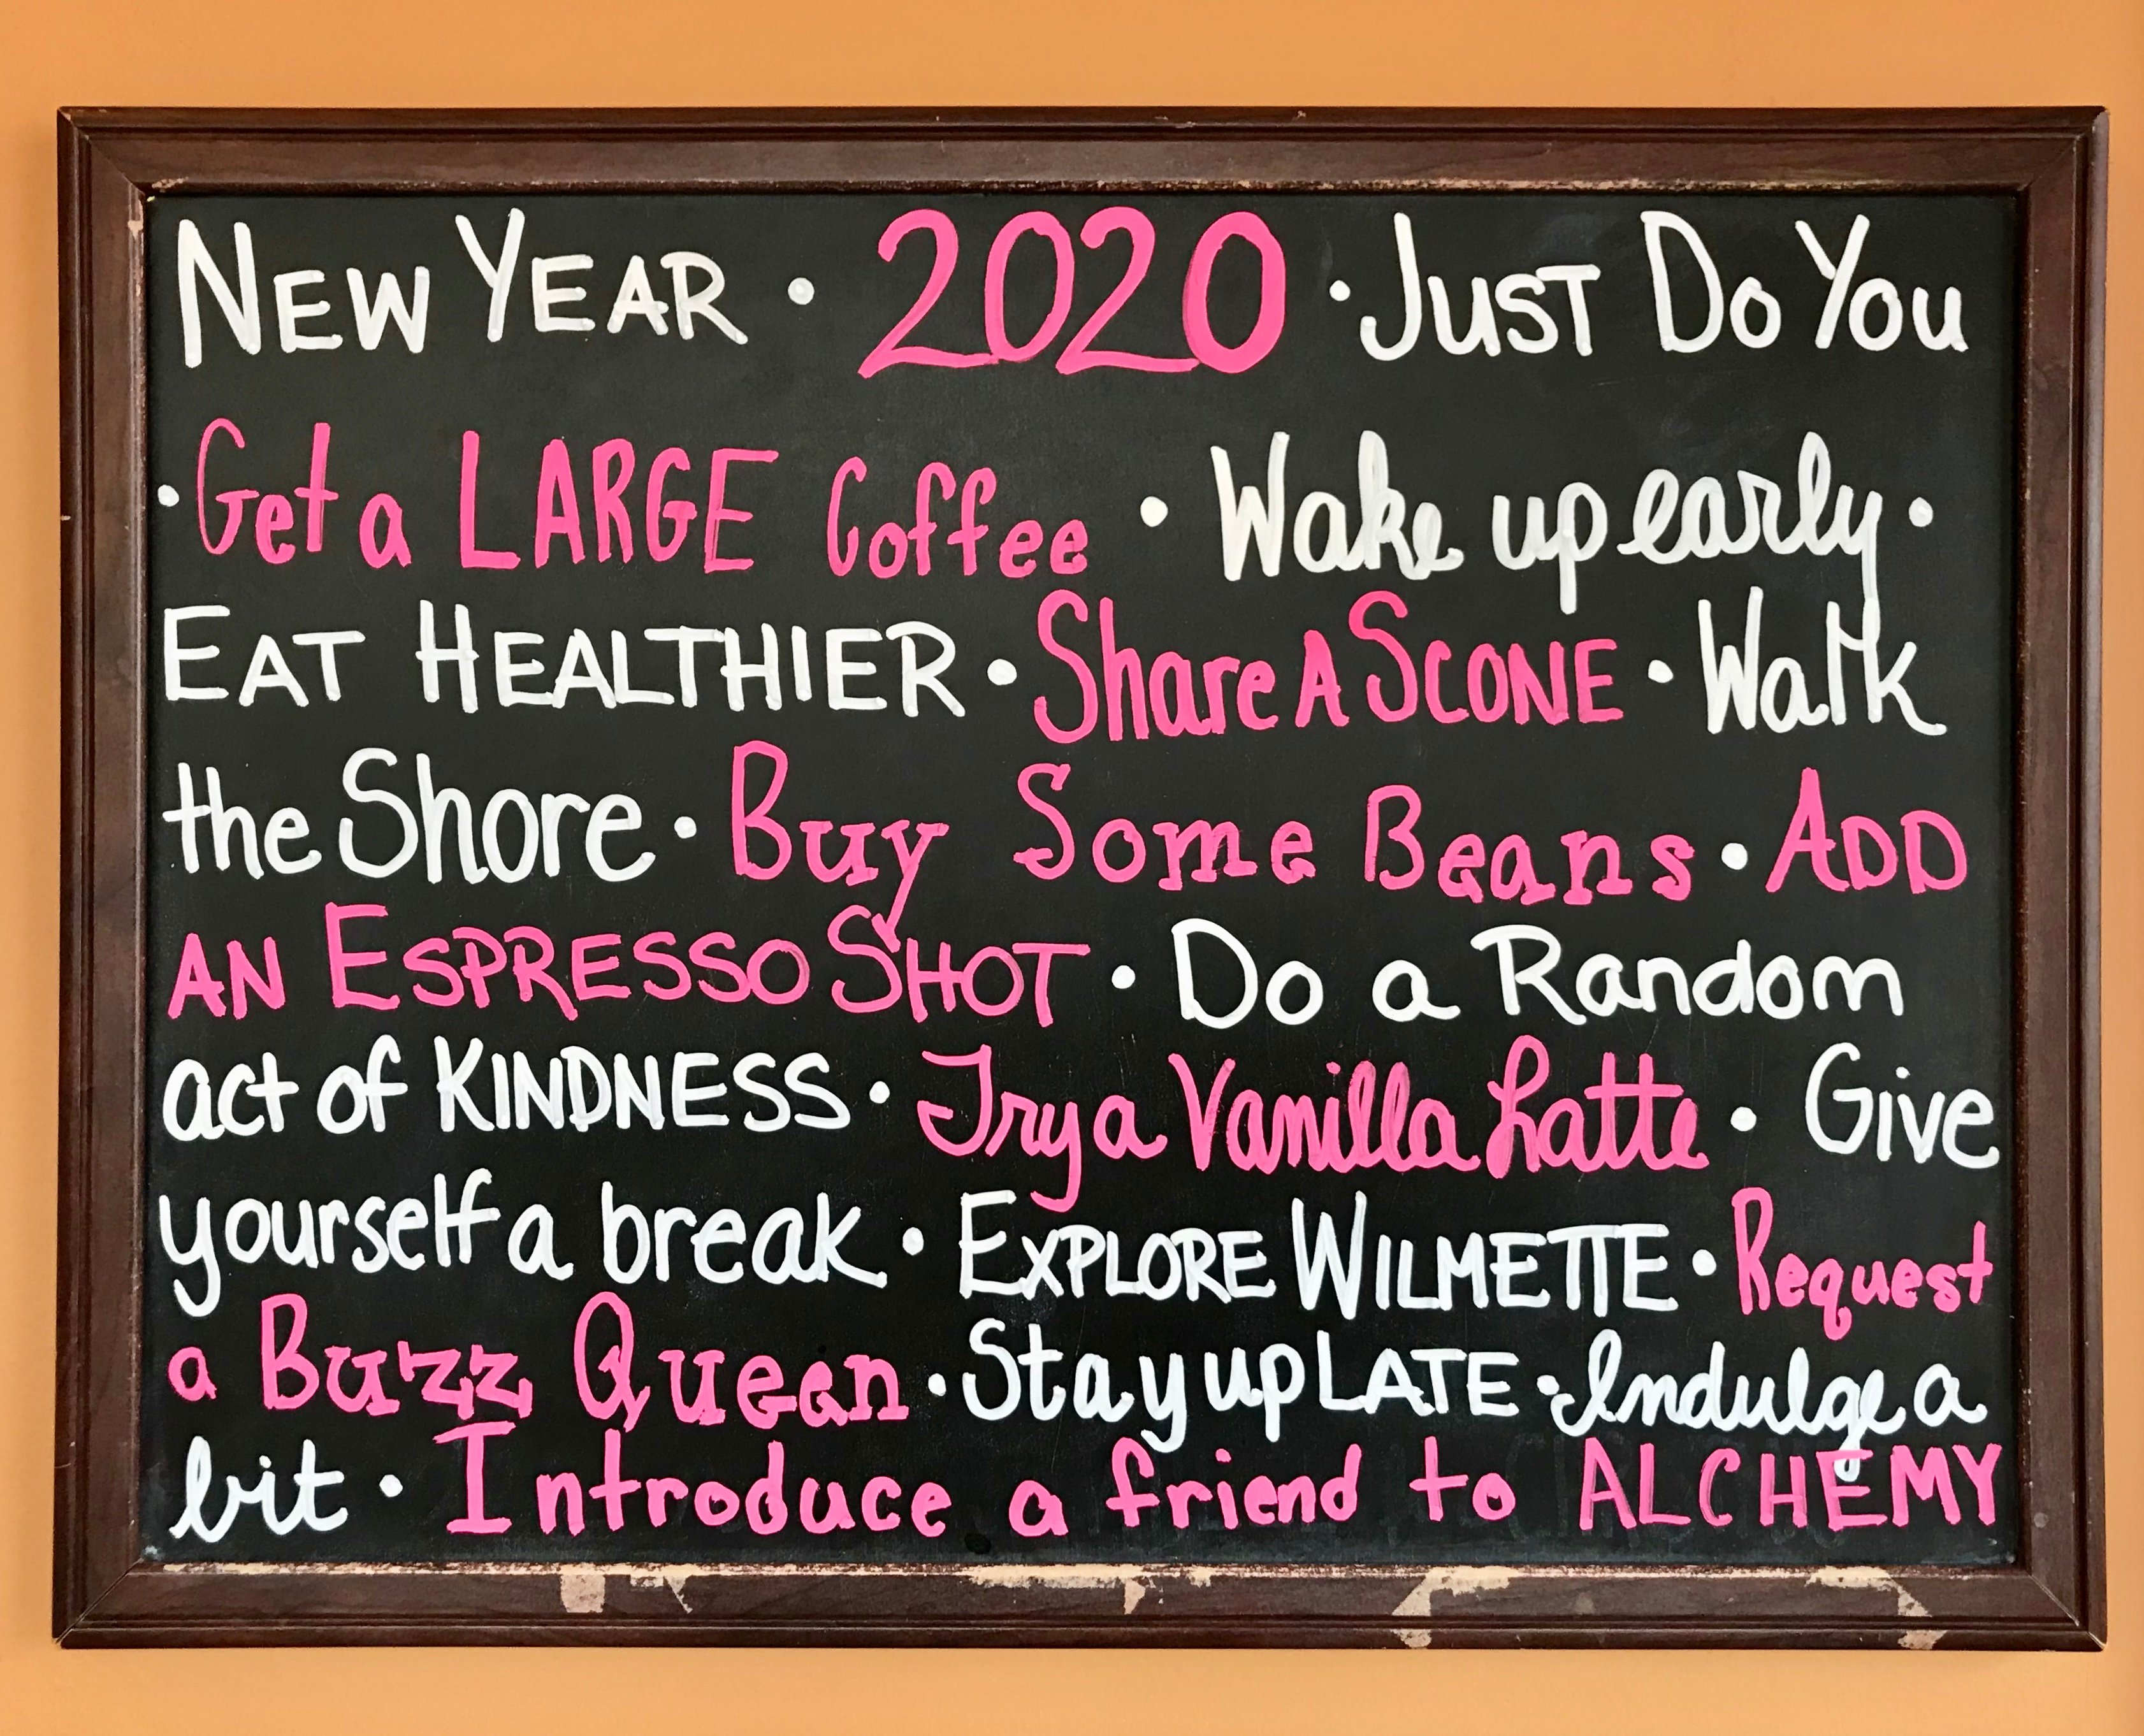 NEW YEAR • 2020 • JUST DO YOU
• Get a LARGE Coffee • Wake up early •
EAT HEALTHIER • Share A SCONE • Walk
the Shore • Buy Some Beans • ADD
AN ESPRESSO SHOT • Do a Random
act of KINDNESS • Try a Vanilla Latte • Give
yourself a break • EXPLORE WILMETTE • Request
a Buzz Queen • Stay up LATE • Indulge a
bit • Introduce a friend to ALCHEMY